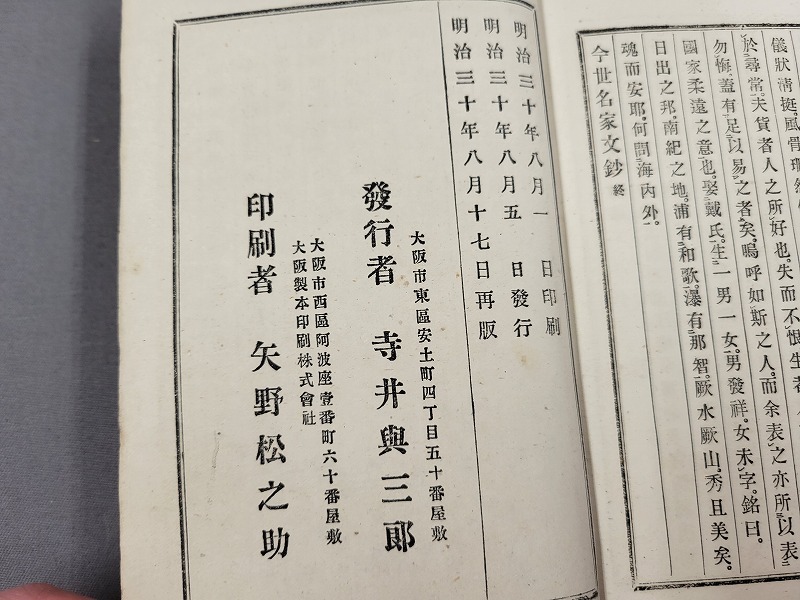 儀狀淸挺。風骨珊然
於尋常。夫貨者人之所好也。失而不恨生者
勿悔。蓋有足以易之者矣。嗚呼如斯之人。而余表之亦所以表
國家柔遠之意也。娶戴氏。生一男一女。男發祥。女未字。銘曰。
日出之邦。南紀之地。浦有和歌。瀑有那智。厥水厥山。秀且美矣。
魂而安耶。何問海內外。
今世名家文鈔 終
明治三十年八月一日印刷
明治三十年八月五日發行
明治三十年八月十七日再版
大阪市東區安土町四丁目五十番屋敷
發行者 寺井與三郞
大阪市西區阿波座壹番町六十番屋敷
大阪製本印刷株式會社
印刷者 矢野松之助